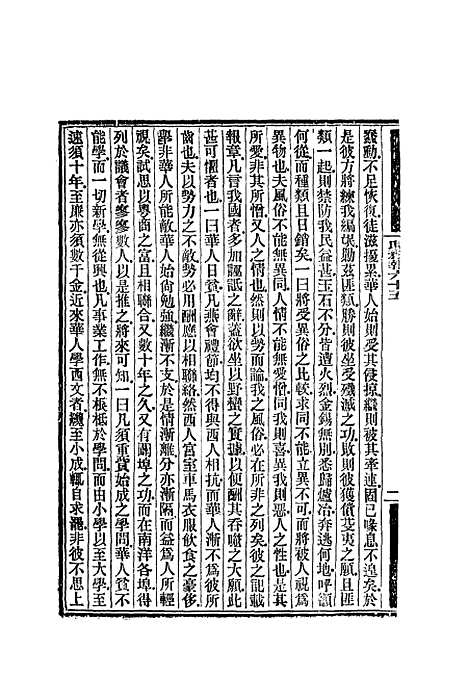 蠢動不足恢復徒滋擾累華人始則受其侵掠繼則被其牽連固已喙息不遑矣於
是彼方將練我編氓勦茲匪類勝則彼坐受殲滅之功敗則彼獲償芟夷之願且匪
類一起則禁防我民益甚玉石不分皆遭火烈金錫無別悉歸爐冶奔逃何地呼籲
何從而種類且日錯矣一曰將受異俗之比較求同不能立異不可而將被人視為
異物也夫風俗不能無異同人情不能無愛憎同我則喜異我則惡人之性也是
所愛非其所憎又人之情也然則以勢而論我之風俗必在所非之列矣彼之記載
報章凡言我國者多加譏詆之辭蓋欲坐以野蠻之實據以便酬其吞噬之大願此
甚可懼者也一曰華人日貧凡燕會禮節均不得與西人相抗而華人漸不為彼所
齒也夫財力之多寡必與勢必用酬應以相聯絡然與西人宮室車馬衣服飲食之豪侈
舉非華人所能敵華人始尚勉強繼漸不支於是情漸離分亦漸隔而益為人所輕
視矣試思以粵商之富且相聯合又數十年之久又有闢埠之功而在南洋各埠得
列於議會者寥寥數人以是推之將來可知一曰凡須重貲始成之學問華人貧不
能學而一切新學無從興也凡事業工作無不根柢於學問而由小學以至大學至
速須十年至廉亦須數千金近來華人學西文者纔至小成輒自求罷非彼不思上